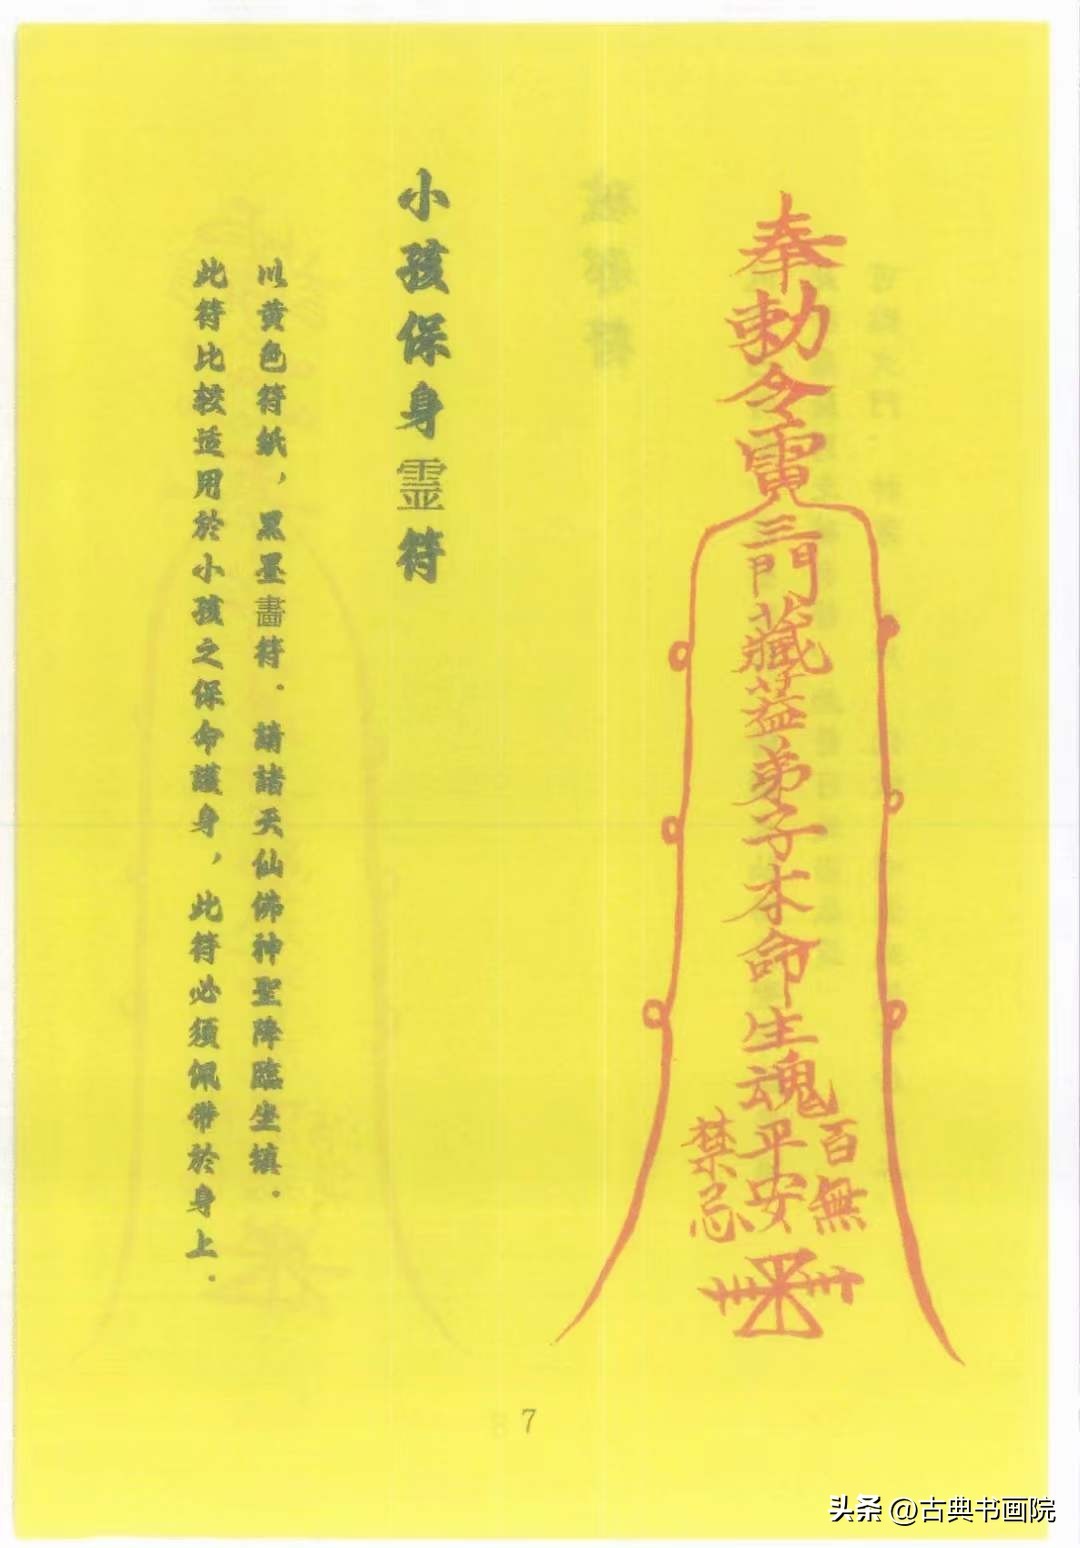 奉勅令
三門藏蓋弟子本命生魂平安
百無
禁忌
小孩保身霊符
以黄色符紙，黑墨畫符．請諸天仙佛神聖降臨坐鎮．
此符比较适用於小孩之保命護身，此符必須佩带於身上．
7
头条 @古典书画院